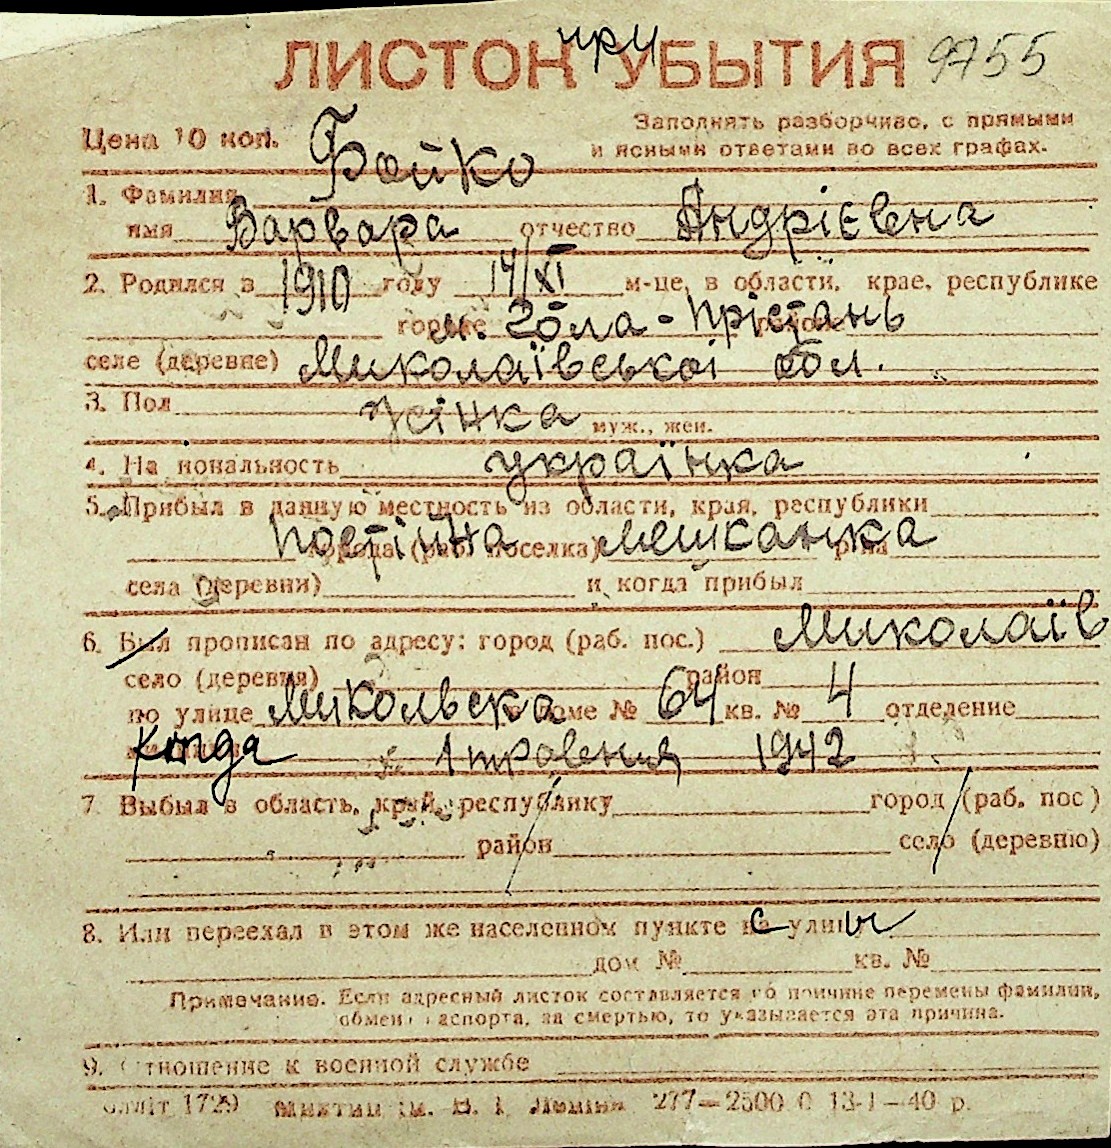 ЛИСТОК при УБЫТИЯ 9755
Цена 10 коп.
Заполнять разборчиво, с прямыми
и ясными ответами во всех графах.
1. Фамилия Бойко
имя Варвара отчество Андріевна
2. Родился в 1910 году 14/XI м-це, в области, крае, республике
городе м. Гола-Прістань районе
селе (деревне) Миколаївської обл.
3. Пол жінка муж., жен.
4. На иональность українка
5. Прибыл в данную местность из области, края, республики
постійна города (раб. поселка) мешканка р-на
села (деревни) и когда прибыл
6. Был прописан по адресу: город (раб. пос.) Миколаїв
село (деревня) район
по улице Микольска доме № 64 кв. № 4 отделение
когда 1 травения 1942 г.
7. Выбыл в область, край, республику город (раб. пос)
район село (деревню)
8. Или переехал в этом же населенном пункте с улицы
дом № кв. №
Примечание. Если адресный листок составляется по причине перемены фамилии,
обмен паспорта, за смертью, то указывается эта причина.
9. Отношение к военной службе
1729 ім. В. І. Леніна 277—2500 0 13-I—40 р.